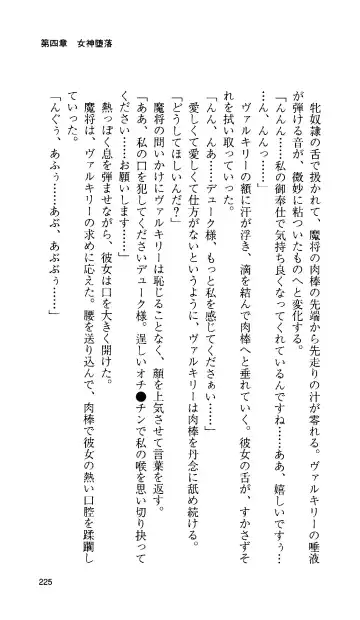 第四章　女神堕落
牝奴隷の舌で扱かれて、魔将の肉棒の先端から先走りの汁が零れる。ヴァルキリーの唾液
が弾ける音が、微妙に粘ついたものへと変化する。
「んんん……私の御奉仕で気持ち良くなってくれているんですね……ああ、嬉しいですぅ…
…ん、んんっ……」
ヴァルキリーの額に汗が浮き、滴を結んで肉棒へと垂れていく。彼女の舌が、すかさずそ
れを拭い取っていった。
「んん、んあ……デューク様、もっと私を感じてくださぁい……」
愛しくて愛しくて仕方がないというように、ヴァルキリーは肉棒を丹念に舐め続ける。
「どうしてほしいんだ？」
魔将の問いかけにヴァルキリーは恥じることなく、顔を上気させて言葉を返す。
「ああ、私の口を犯してくださいデューク様。逞しいオチ●チンで私の喉を思い切り抉って
ください……お願いします……」
熱っぽく息を弾ませながら、彼女は口を大きく開けた。
魔将は、ヴァルキリーの求めに応えた。腰を送り込んで、肉棒で彼女の熱い口腔を蹂躙し
ていった。
「んぐぅ、あふぅ……あぶ、あぶぶぅ……」
225